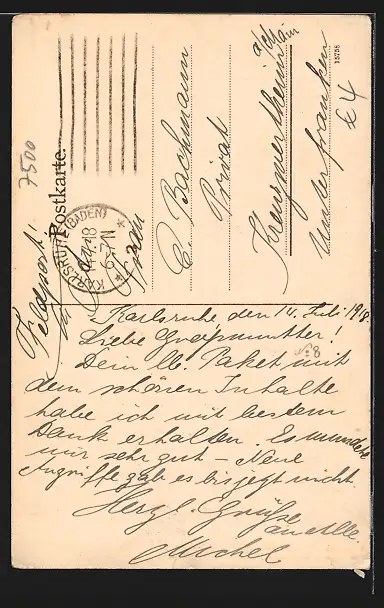 Postkarte
Feldpost!
KARLSRUHE (BADEN)
18
6-7N
Frau
C. Bachmann
Privat
Kreuzwertheim
a/Main
Unterfranken
15758
£4
7500
Karlsruhe den 14. Juli 1918.
Liebe Großmutter!
Dein lb. Paket mit
No 8
dem schönen Inhalte
habe ich mit bestem
Dank erhalten. Es mundete
mir sehr gut – Neue
Angriffe gab es bis jetzt nicht.
Herzl. Grüße
an Alle.
Michel